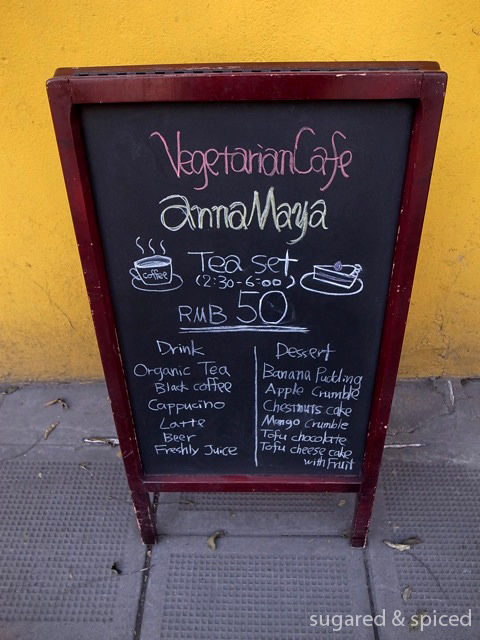 VegetarianCafe
annaMaya
coffee
Tea set
(2:30-6:00)
RMB 50
Drink
Organic Tea
Black coffee
Cappucino
Latte
Beer
Freshly Juice
Dessert
Banana Pudding
Apple Crumble
Chestnuts cake
Mango Crumble
Tofu chocolate
Tofu cheese cake
with Fruit
sugared & spiced